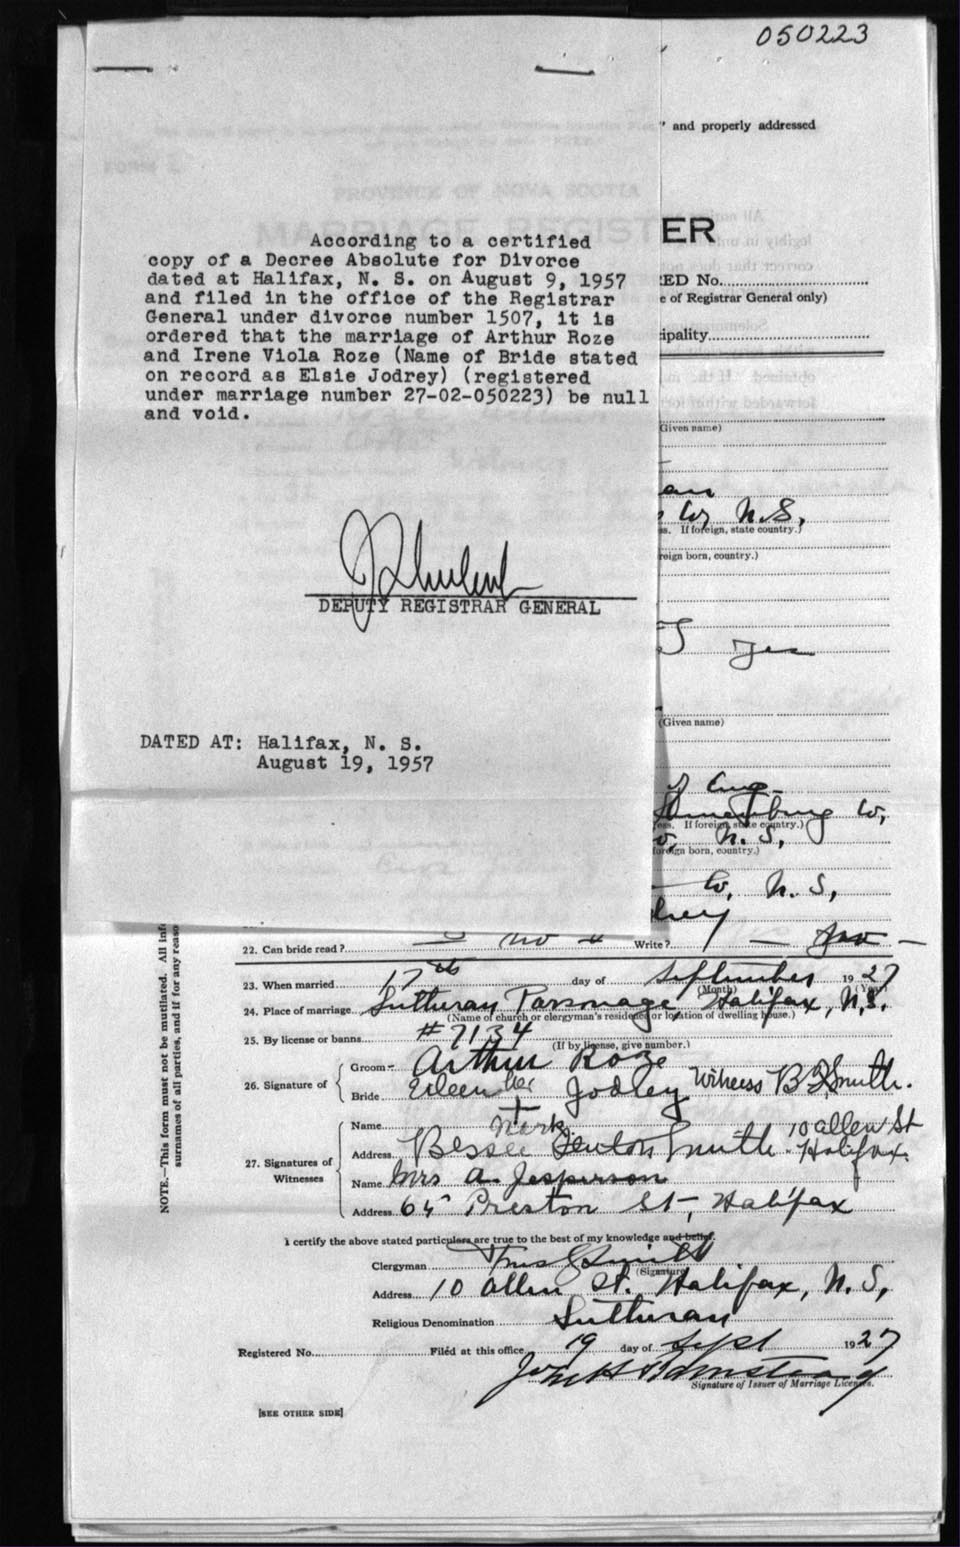 050223
" and properly addressed
PROVINCE OF NOVA SCOTIA
MARRIAGE REGISTER
According to a certified
copy of a Decree Absolute for Divorce
dated at Halifax, N. S. on August 9, 1957
and filed in the office of the Registrar
General under divorce number 1507, it is
ordered that the marriage of Arthur Roze
and Irene Viola Roze (Name of Bride stated
on record as Elsie Jodrey) (registered
under marriage number 27-02-050223) be null
and void.
ED No.
e of Registrar General only)
ipality
(Given name)
Co, N.S,
ss. If foreign, state country.)
reign born, country.)
DEPUTY REGISTRAR GENERAL
yes
(Given name)
DATED AT: Halifax, N. S.
August 19, 1957
of Eng
Lunenburg Co,
ess. If foreign, state country.)
N. S,
foreign born, country.)
Co, N. S,
22. Can bride read? no Write?
23. When married 17th day of September 1927
(Month) (Year)
24. Place of marriage Lutheran Parsonage, Halifax, N.S.
(Name of church or clergyman's residence or location of dwelling house.)
25. By license or banns #7134
(If by license, give number.)
26. Signature of
Groom Arthur Roze
Bride Eileen her Jodley Witness B F Smith.
+
Mark
27. Signatures of Witnesses
Name
Address Bessie Fenton Smith 10 Allen St Halifax.
Name Mrs A. Jesperson
Address 65 Preston St, Halifax
I certify the above stated particulars are true to the best of my knowledge and belief.
Clergyman Smith
(Signature)
Address 10 Allen St. Halifax, N. S,
Religious Denomination Lutheran
Registered No. Filed at this office 19 day of Sept 1927
Signature of Issuer of Marriage Licenses.
[SEE OTHER SIDE]
NOTE.—This form must not be mutilated. All inf
surnames of all parties, and if for any reaso